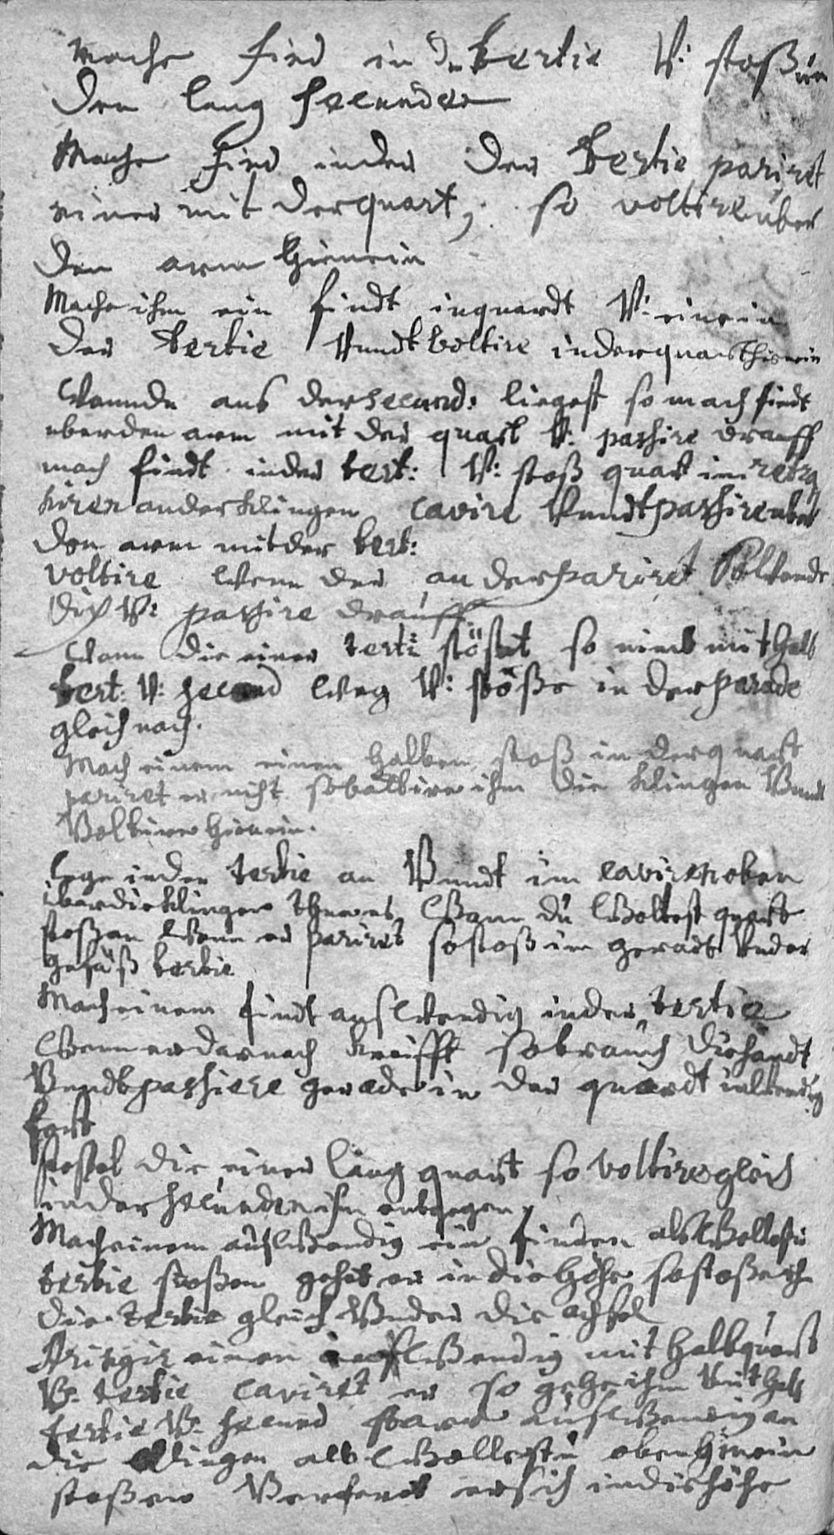 Mache find in der tertie V: stoß in
den lang secunden
Mache find in der der tertie pariret
einer mit der quart, so voltire über
den arm hienein
Mache ihm ein findt in quardt V: eine in
der tertie Vundt voltire in der quart hienein
Wann du aus der secund: liegest so mach findt
uber den arm mit der quart V: passire drauff
mach findt in der tert: V: stoß quart im
ander klingen cavire Vundt passire unter
den arm mit der tert:
voltire wenn der ander pariret
dich V: passire drauff
Wann dir einer terti stöset so nimb mit halb
tert: V: secund weg V: stöße in der parade
gleich nach.
Mach einem einen halben stoß in der quart
pariret er nicht so batire ihm die klingen Vundt
Voltire hienein.
lege in der tertie an Vundt im caviren oben
über die klingen wann du woltest quart
stoßen wenn er pariret so stoß im geradt unter
gefäß tertie
Mach einem findt auswendig in der tertie
Wenn er darnach greifft so brauch die handt
Vundt passiere gerade in der quardt inwendig
fort
stoset dir einer lang quart so voltire gleich
in der secunden ihm entgegen
Mach einem auswendig ein finden als woltestu
tertie stoßen gehet er in die höhe so stoße ihm
die tertie gleich unter die achsel
Stringir einen auswendig mit halb quart
V: tertie caviret er so gehe ihm mit halb
tertie V: secund starck auswendig an
die klingen als wollestu oben hienein
stoßen Verfert er sich in die höhe